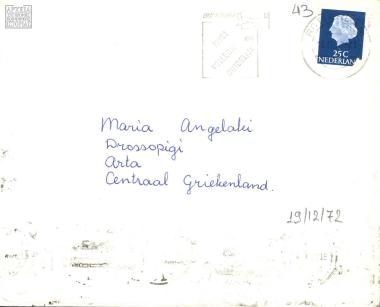 43
25C
NEDERLAND
Maria Angelaki
Drossopigi
Arta
Centraal Griekenland.
19/12/72